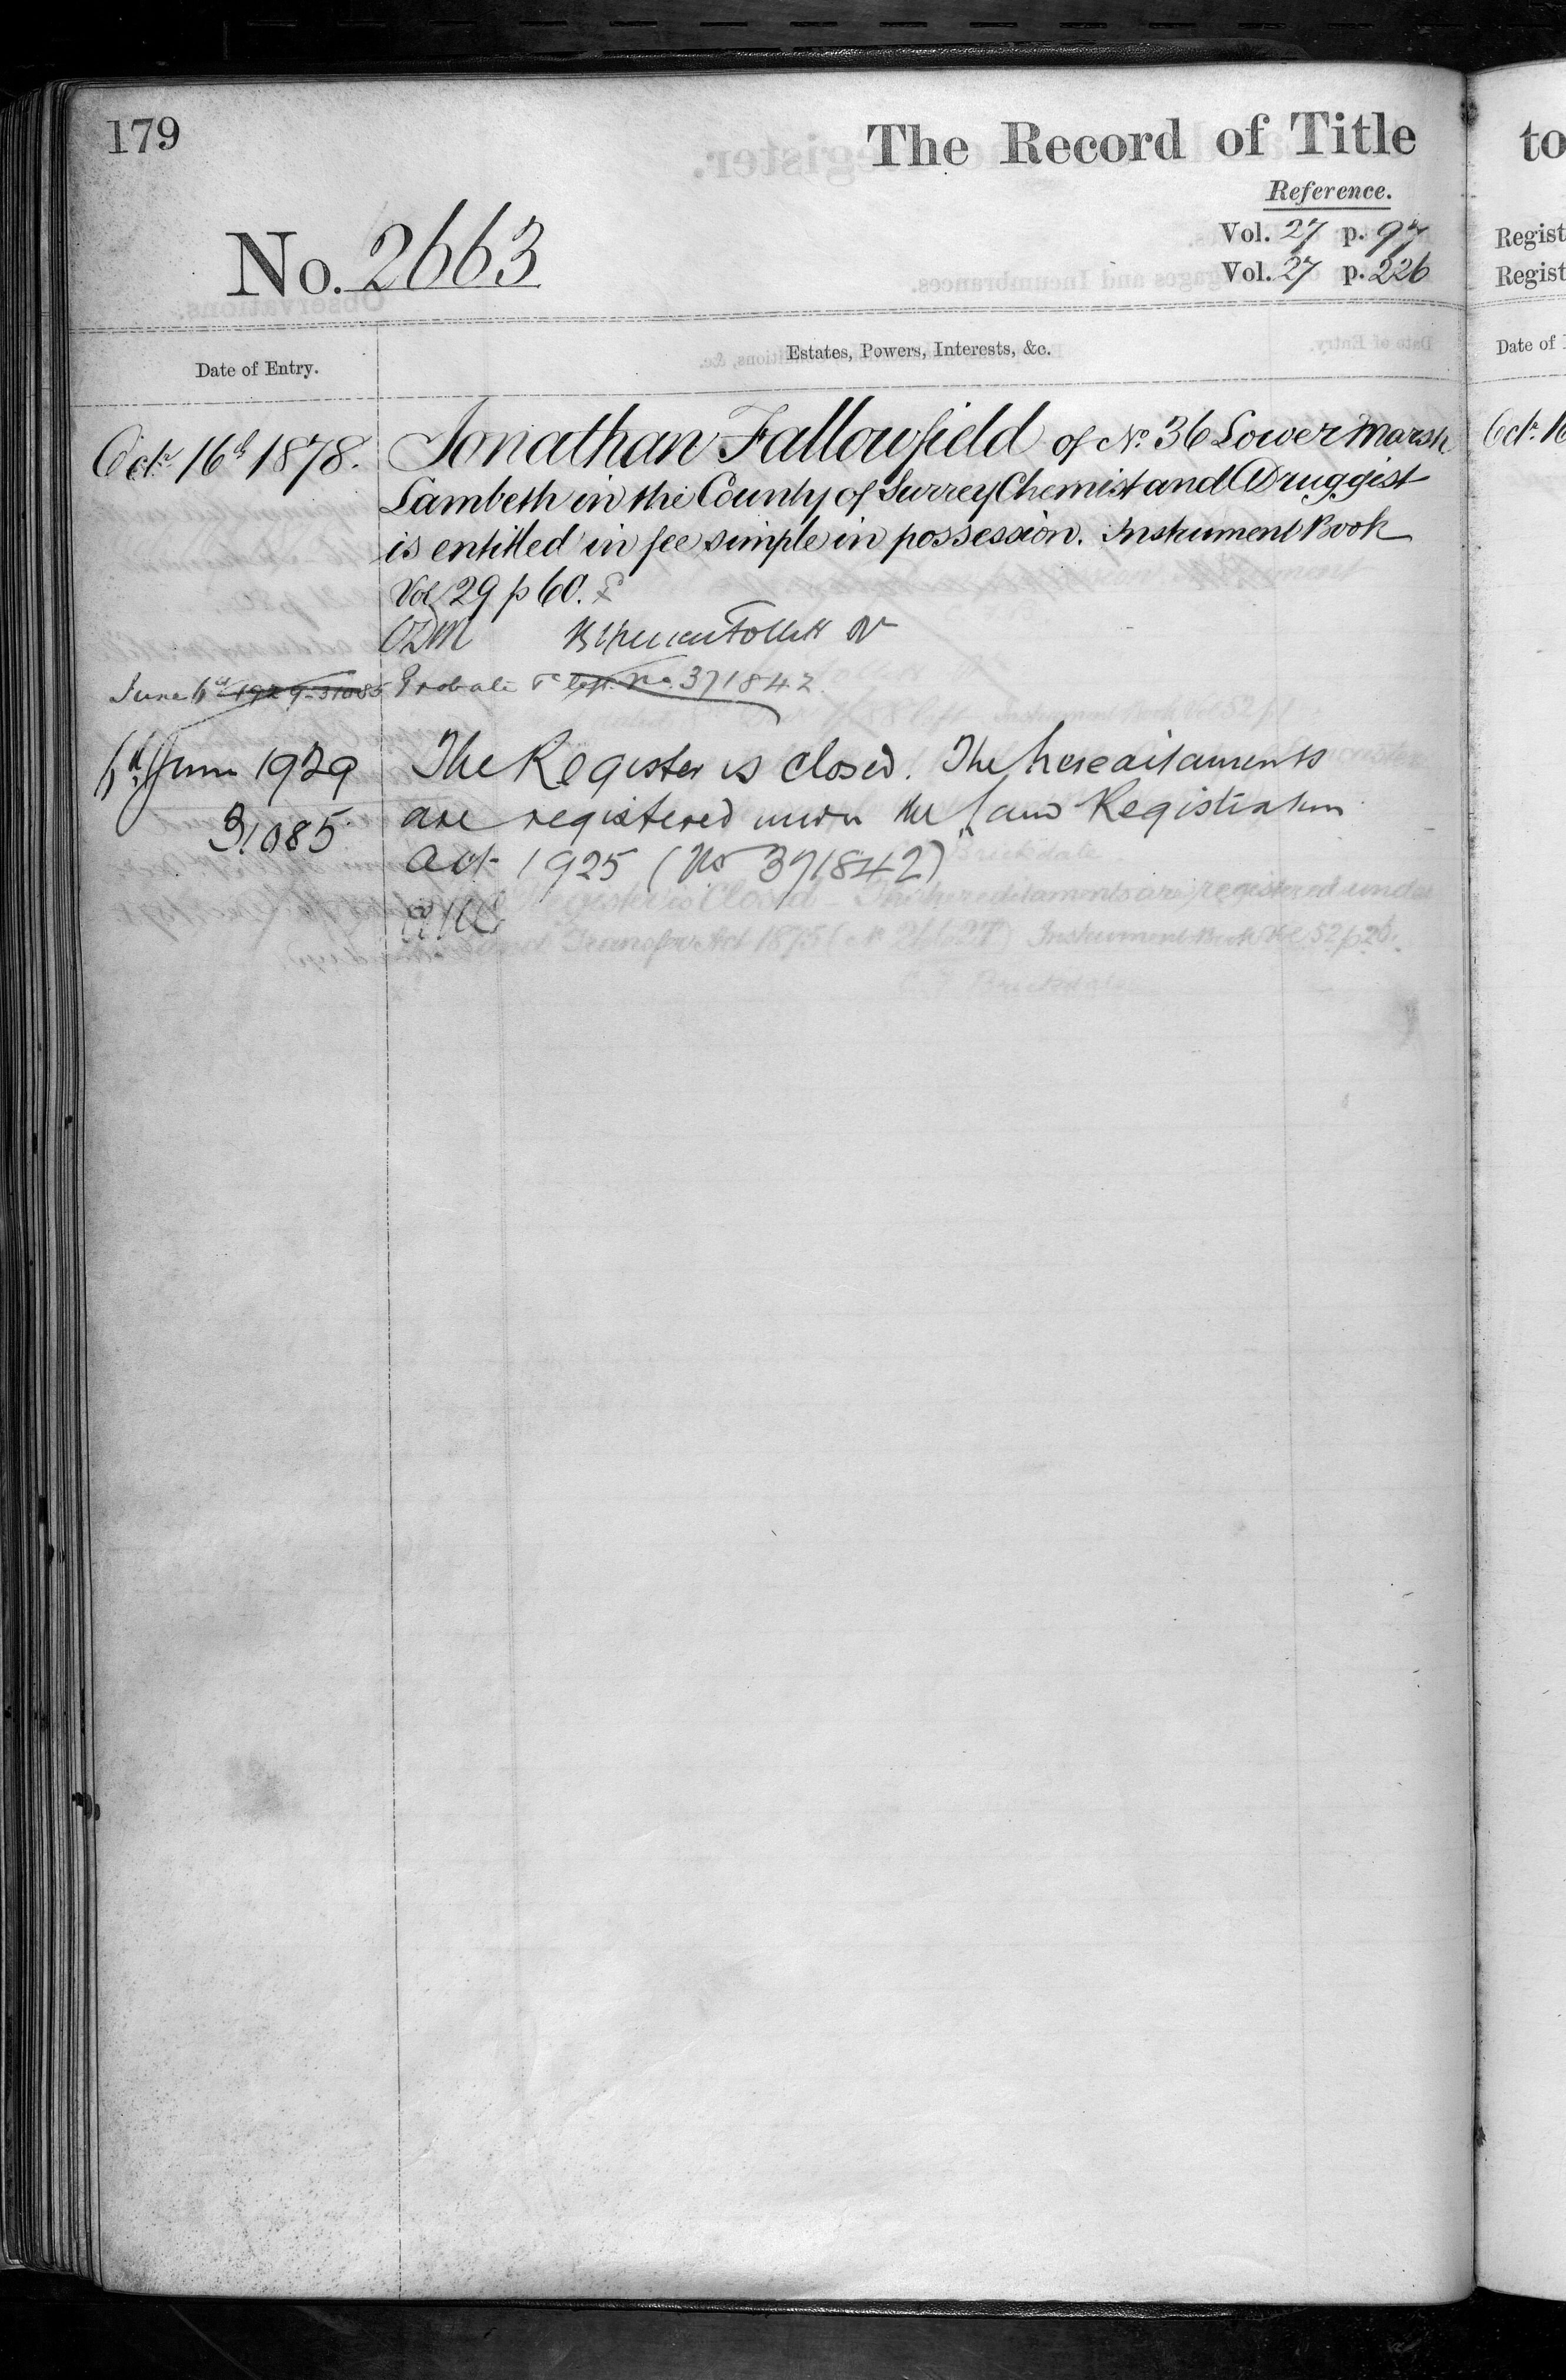 179
The Record of Title
Reference.
No. 2663
Vol. 27 p. 97
Vol. 27 p. 226
Date of Entry.
Estates, Powers, Interests, &c.
Octr. 16th 1878.
Jonathan Fallowfield of No. 36 Lower Marsh
Lambeth in the County of Surrey Chemist and Druggist
is entitled in fee simple in possession. Instrument Book
Vol 29 p 60.
June 6th 1929 31085 Probate No. 371842
6th June 1929
31085
The Register is closed. The hereditaments
are registered under the Land Registration
Act 1925 (No 371842)
to
Regist
Regist
Date of
Octr. 16